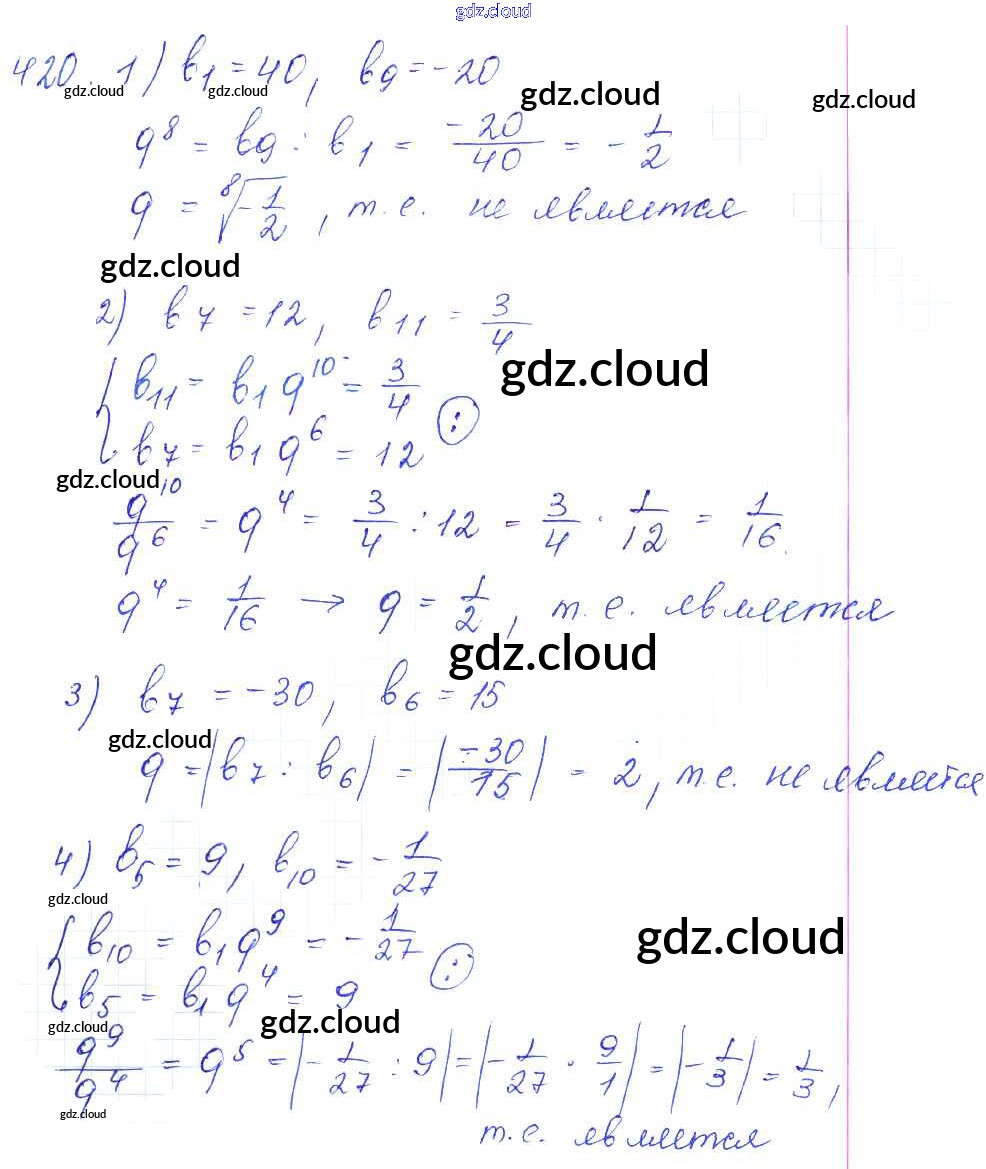 gdz.cloud
420. 1) b₁ = 40, b₉ = -20
gdz.cloud gdz.cloud gdz.cloud gdz.cloud
q⁸ = b₉ : b₁ = -20/40 = -1/2
q = ⁸√-1/2, т.е. не является
gdz.cloud
2) b₇ = 12, b₁₁ = 3/4
gdz.cloud
{ b₁₁ = b₁q¹⁰ = 3/4
b₇ = b₁q⁶ = 12 (:)
gdz.cloud
q¹⁰/q⁶ = q⁴ = 3/4 : 12 = 3/4 · 1/12 = 1/16
q⁴ = 1/16 → q = 1/2, т.е. является
gdz.cloud
3) b₇ = -30, b₆ = 15
gdz.cloud
q = |b₇ : b₆| = |-30/15| = 2, т.е. не является
4) b₅ = 9, b₁₀ = -1/27
gdz.cloud
{ b₁₀ = b₁q⁹ = -1/27
gdz.cloud
b₅ = b₁q⁴ = 9 (:)
gdz.cloud gdz.cloud
q⁹/q⁴ = q⁵ = |-1/27 : 9| = |-1/27 · 9/1| = |-1/3| = 1/3,
gdz.cloud
т.е. является